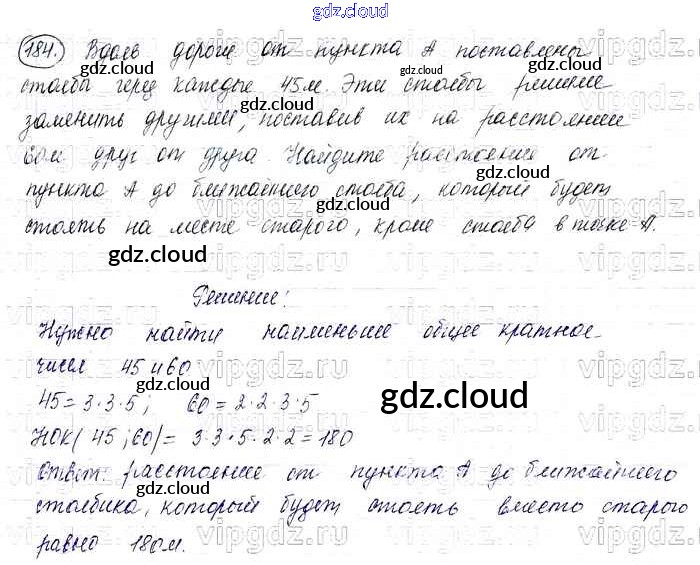 gdz.cloud
184. Вдоль дороги от пункта А поставлены
столбы через каждые 45м. Эти столбы решили
заменить другими, поставив их на расстоянии
60м друг от друга. Найдите расстояние от
пункта А до ближайшего столба, который будет
стоять на месте старого, кроме столба в точке А.
Решение:
Нужно найти наименьшее общее кратное
чисел 45 и 60
45 = 3·3·5; 60 = 2·2·3·5
НОК(45;60) = 3·3·5·2·2 = 180
Ответ: расстояние от пункта А до ближайшего
столбика, который будет стоять вместо старого
равно 180м.